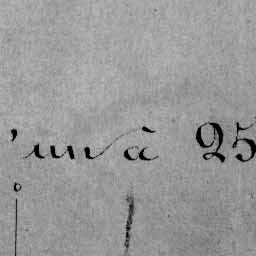 'un à 25